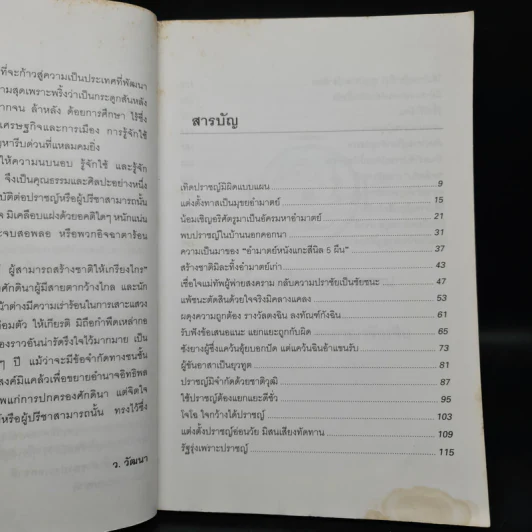 ที่จะก้าวสู่ความเป็นประเทศที่พัฒนา
ามสุดเพราะพริ้งว่าเป็นกระดูกสันหลัง
ากจน ล้าหลัง ด้อยการศึกษา ไร้ซึ่ง
เศรษฐกิจและการเมือง การรู้จักใช้
หารีบด่วนที่แหลมคมยิ่ง
ให้ความนบนอบ รู้จักใช้ และรู้จัก
จึงเป็นคุณธรรมและศิลปะอย่างหนึ่ง
บัติต่อปราชญ์หรือผู้ปรีชาสามารถนั้น
มิเคลือบแฝงด้วยอคติใดๆ หนักแน่น
ะจบสอพลอ หรือพวกอิจฉาตาร้อน
ผู้สามารถสร้างชาติให้เกรียงไกร"
งศักดินาผู้มีสายตากว้างไกล และนัก
น้าต่างมีความเร่าร้อนในการเสาะแสวง
อมตัว ให้เกียรติ มิถือกำพืดเหล่ากอ
องราวอันน่ารัดรึงใจไว้มากมาย เป็น
ๆ ปี แม้ว่าจะมีข้อจำกัดทางชนชั้น
งคัมิแคล้วเพื่อขยายอำนาจอิทธิพล
พแก่การปกครองศักดินา แต่จิตใจ
ห์หรือผู้ปรีชาสามารถนั้น ทรงไว้ซึ่ง
ว. วัฒนา
สารบัญ
เทิดปราชญ์มิผิดแบบแผน 9
แต่งตั้งทาสเป็นมุขยอำมาตย์ 15
น้อมเชิญอริศัตรูมาเป็นอัครมหาอำมาตย์ 21
พบปราชญ์ในบ้านนอกคอกนา 31
ความเป็นมาของ "อำมาตย์หนังแกะสีนิล 5 ผืน" 37
สร้างชาติมิละทิ้งอำมาตย์เก่า 43
เชื่อใจแม่ทัพผู้พ่ายสงคราม กลับความปราชัยเป็นชัยชนะ 47
แพ้ชนะตัดสินด้วยใจจริงมิคลางแคลง 53
ผดุงความถูกต้อง รางวัลตงฉิน ลงทัณฑ์กังฉิน 61
รับฟังข้อเสนอแนะ แยกแยะถูกกับผิด 65
ชังยางผู้ซึ่งแคว้นอุ้ยบอกปัด แต่แคว้นฉินอ้าแขนรับ 73
ผู้ขันอาสาเป็นยุวทูต 81
ปราชญ์มิจำกัดด้วยชาติวุฒิ 87
ใช้ปราชญ์ต้องแยกแยะดีชั่ว 95
โจโฉ ใจกว้างได้ปราชญ์ 103
แต่งตั้งปราชญ์อ่อนวัย มิสนเสียงทัดทาน 109
รัฐรุ่งเพราะปราชญ์ 115